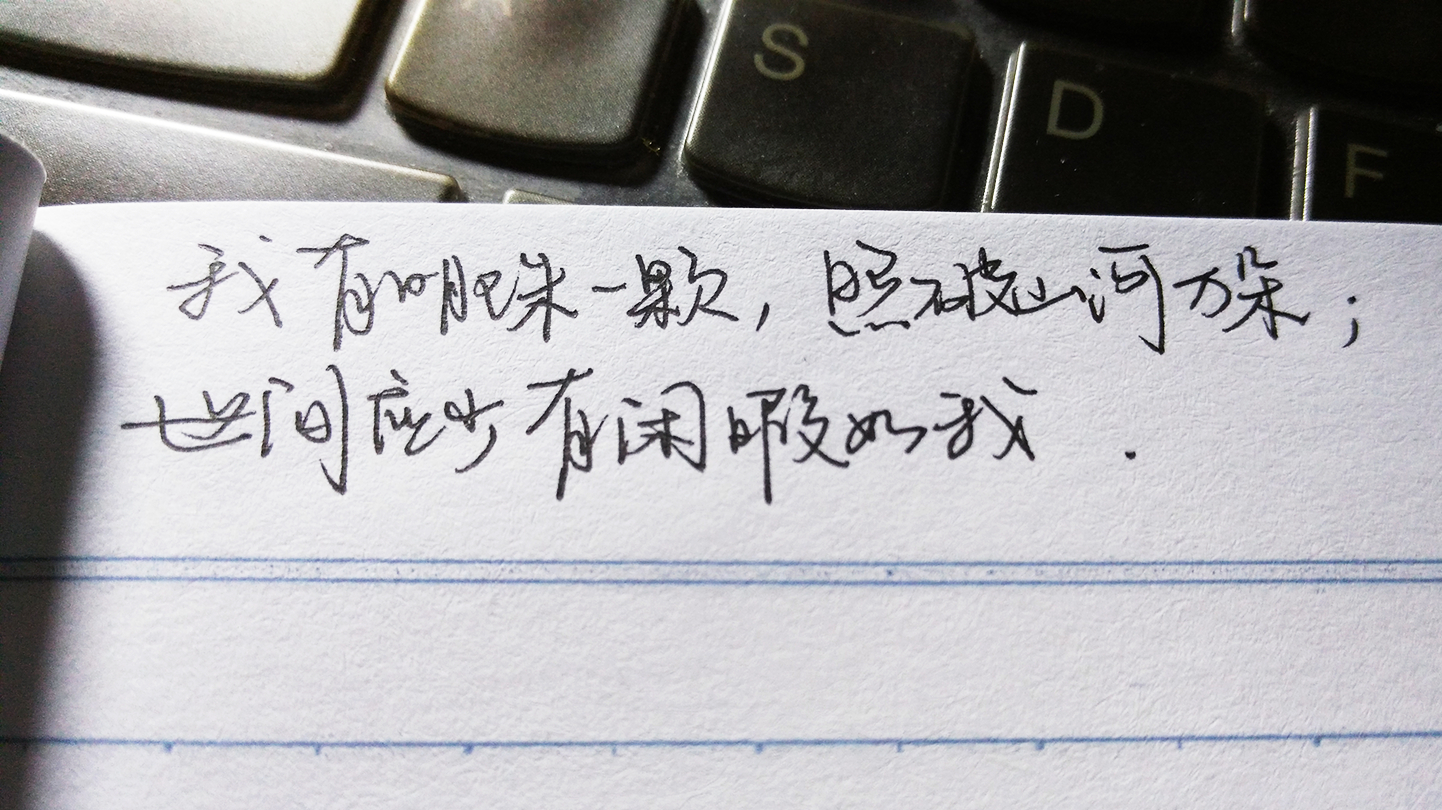 S
D
F
我有明珠一颗，照破山河万朵；
世间应少有闲暇如我．